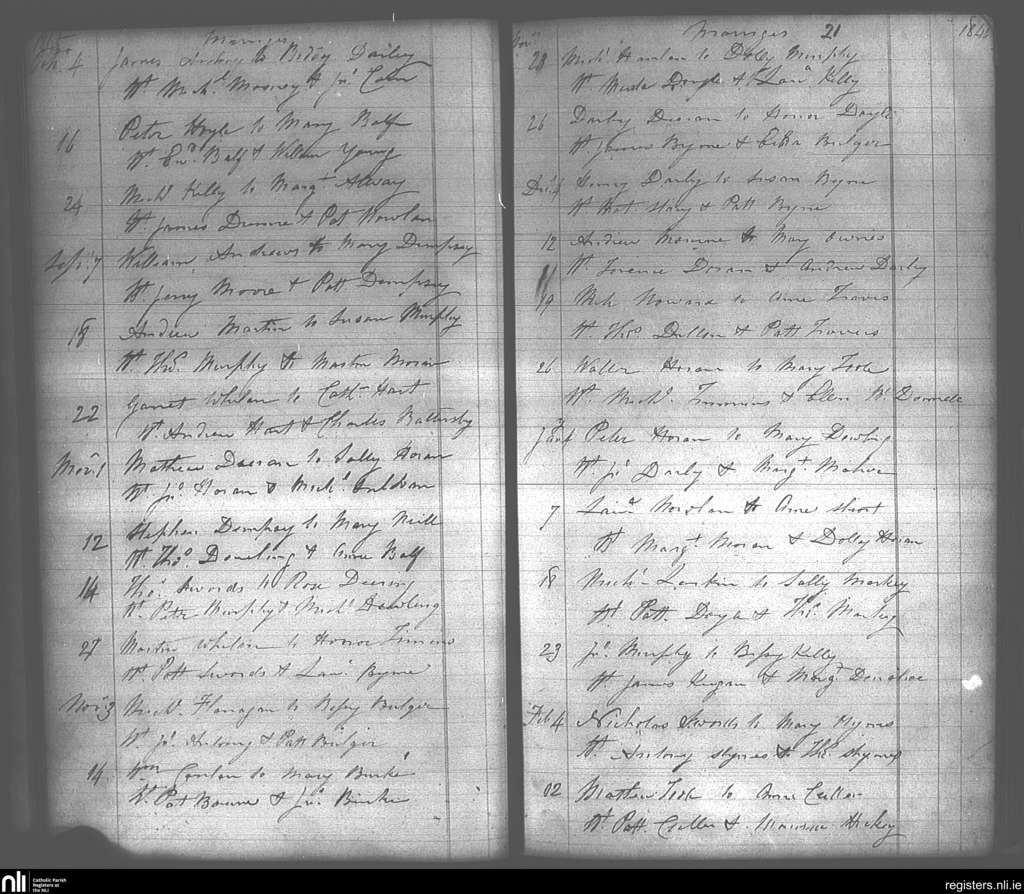 Marriages
Feb. 4 James to Biddy Dailey
Wt. Michl. Mooney & Jno.
16 Peter Hoyle to Mary Balfe
Wt. Edwd. Balf & William Young
24 Michl. Kelly to Margt. Alway
Wt. James Dunne & Pat Nowlan
Sepr. 7 William Andrews to Mary Dempsey
Wt. Jerry Moore & Patt Dempsey
18 Andrew Martin to Susan Murphy
Wt. Thos. Murphy & Martin Moran
22 Garret Whelan to Cathn. Hart
Wt. Andrew Hart & Charles Battersby
Mathew Deeran to Sally Horan
Wt. Jno. Horan & Michl.
12 Stephen Dempsey to Mary Neill
Wt. Thos. Doweling & Anne Balf
14 Thos. Swords to Rose Deering
Wt. Peter Murphy & Michl. Dowling
27 Martin Whelan to Honor
Wt. Patt Swords & Law. Byrne
Novr. 3 Michl. Flanagan to Bessy Bulger
Wt. Jno. Antony & Patt Bulger
14 Wm. Conlan to Mary Burke
Wt. Pat Bowne & Jno. Burke
Marriages 21 184
23 Michl. Hanlon to Dolly Murphy
Wt. Doyle & Law. Kelly
26 Darby Deeran to Honor Doyle
Wt. James Byrne & Bulger
Decr. Henry Darby to Susan Byrne
Wt. & Patt Byrne
12 Andrew to Mary
Wt. Terence Doran & Andrew Darby
19 Mich. Howard to Anne Travers
Wt. Thos. Dullon & Patt Travers
26 Walter Horan to Mary Toole
Wt. Michl. Timmins & Ellen Mc Donnele
Peter Horan to Mary Dowling
Wt. Jno. Darby & Margt.
7 Law. Nowlan to Anne Short
Wt. Margt. Moran & Dolly Horan
18 Michl. Larkin to Sally Markey
Wt. Patt. Doyle & Thos. Markey
23 Jno. Murphy to Bessy Kelly
Wt. James Keegan & Margt.
Feb 4 Nicholas Swords to Mary
Wt. Antony & Thos.
02 Mathew Toole to Anne Cullen
Wt. Patt. Cullen & Maurice Hickey
nli Catholic Parish
Registers at
the NLI
registers.nli.ie